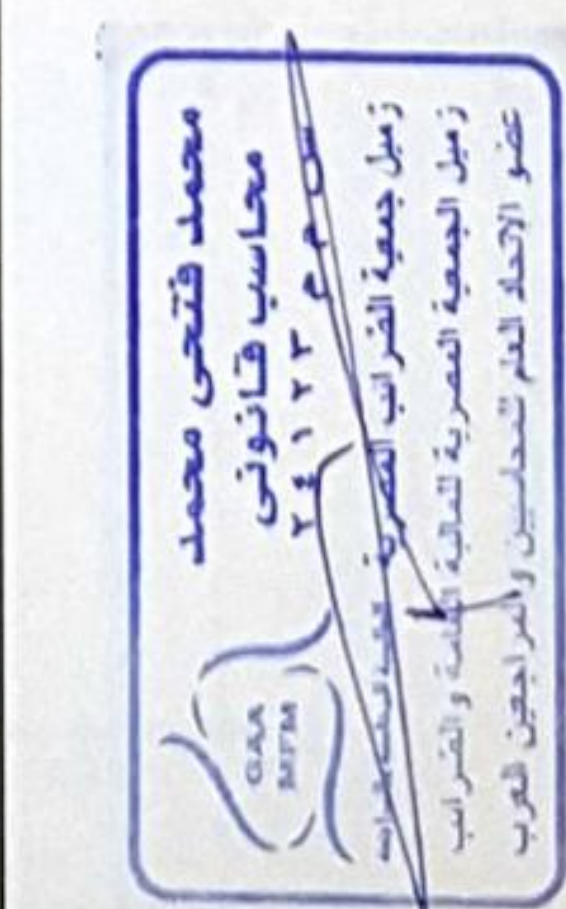 محمد فتحى محمد
محاسب قانونى
س م م ٢٤١٢٣
زميل جمعية الضرائب المصرية
زميل الجمعية المصرية للمالية العامة و الضرائب
عضو الاتحاد العام للمحاسبين والمراجعين العرب
GAA
MFM